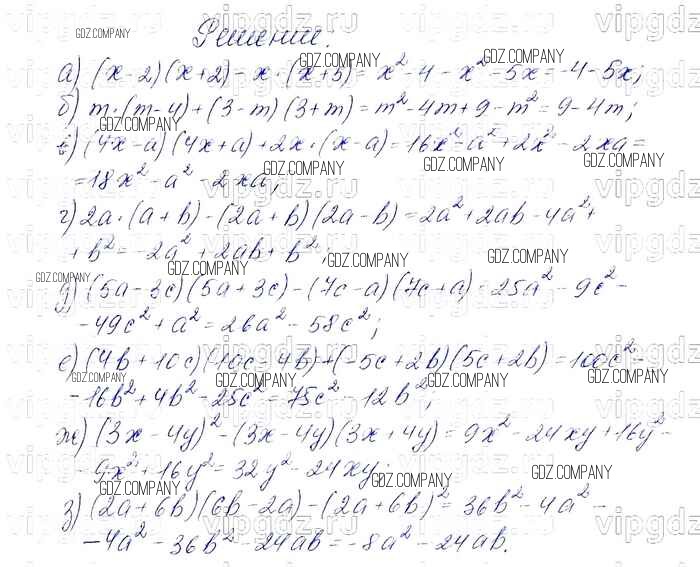 Решение.
а) (x-2)(x+2)-x·(x+5)= x²-4-x²-5x=-4-5x;
б) m·(m-4)+(3-m)(3+m)=m²-4m+9-m²=9-4m;
в) (4x-a)(4x+a)+2x·(x-a)=16x²-a²+2x²-2xa=
=18x²-a²-2xa;
г) 2a·(a+b)-(2a+b)(2a-b)=2a²+2ab-4a²+
+b²=-2a²+2ab+b²;
д) (5a-3c)(5a+3c)-(7c-a)(7c+a)=25a²-9c²-
-49c²+a²=26a²-58c²;
е) (4b+10c)(10c-4b)+(-5c+2b)(5c+2b)=100c²-
-16b²+4b²-25c²=75c²-12b²;
ж) (3x-4y)²-(3x-4y)(3x+4y)=9x²-24xy+16y²-
-9x²+16y²=32y²-24xy;
з) (2a+6b)(6b-2a)-(2a+6b)²=36b²-4a²-
-4a²-36b²-24ab=-8a²-24ab.